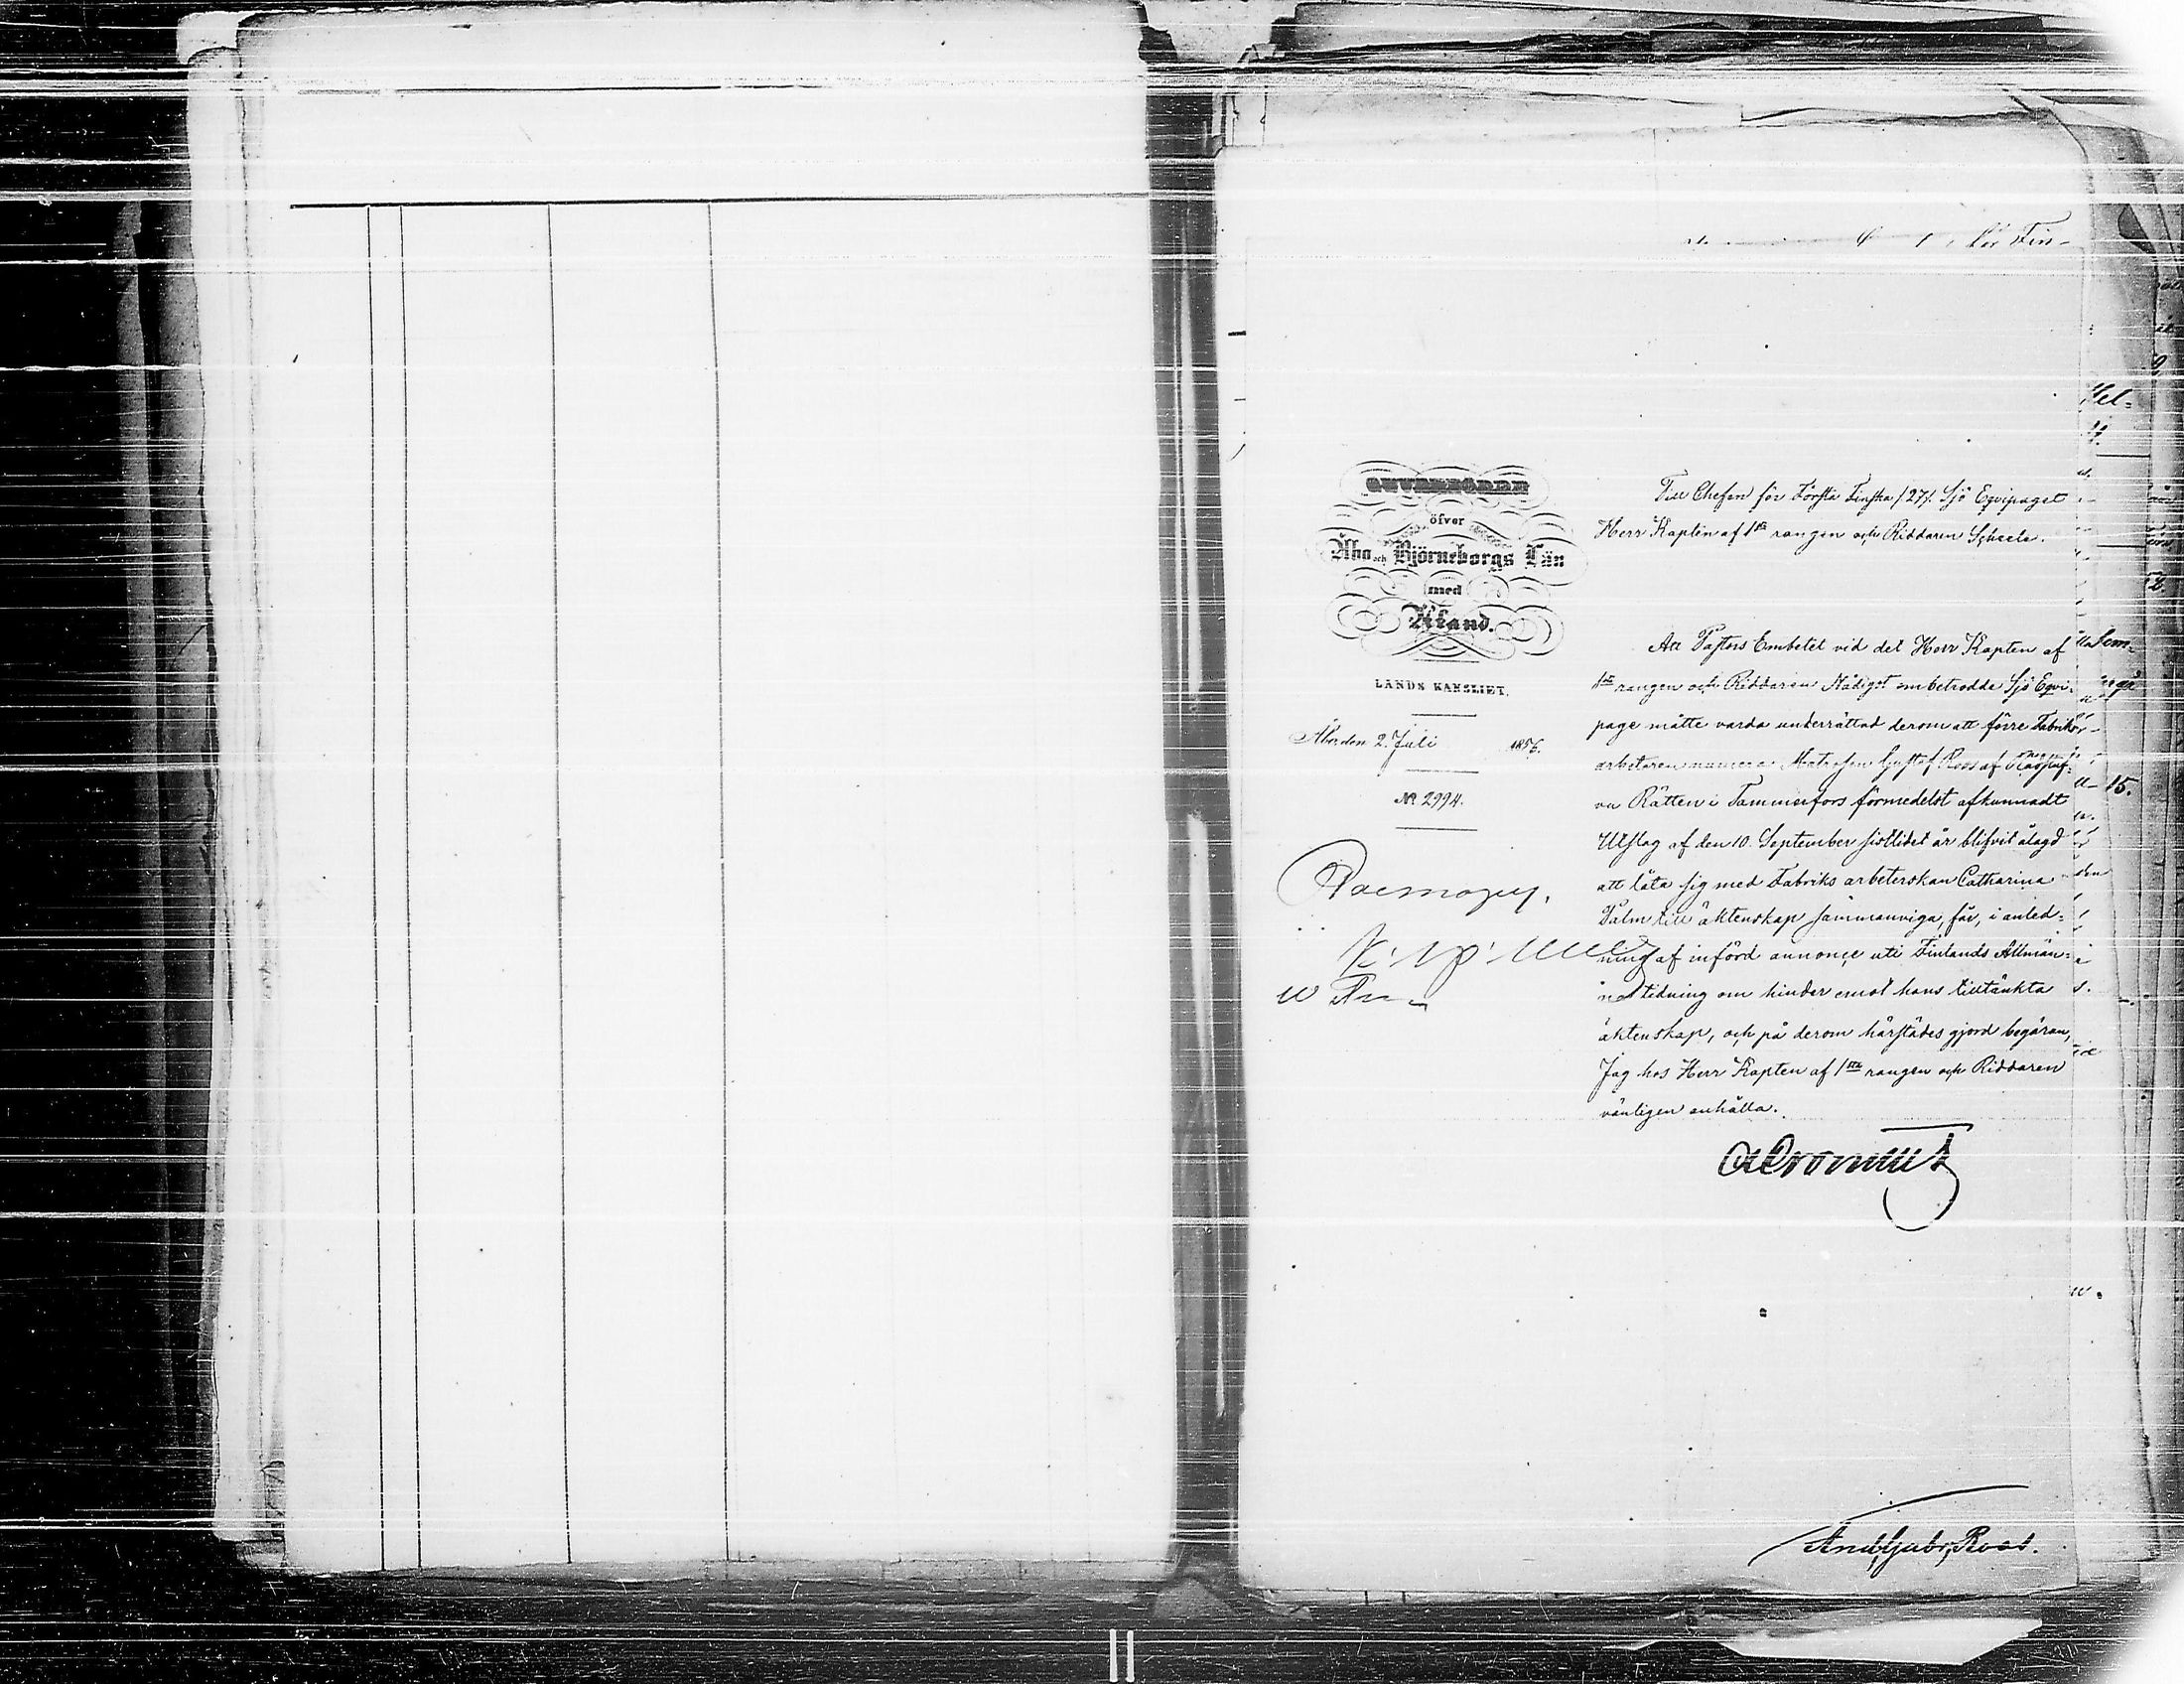 för Fin-
GUVERNÖREN
öfver
Åbo och Björneborgs Län
med
Åland.
LANDS KANSLIET.
Åbo, den 2. Juli 1856.
№ 2994.
Till Chefen för Första Finska /27/. Sjö Equipaget
Herr Kapten af 1sta rangen och Riddaren Scheele.
Att Pastors Embetet vid det Herr Kapten af
1sta rangen och Riddaren Nådigst ombetrodde Sjö Equi-
page måtte varda underrättad derom att förre Fabriks-
arbetaren numera Matrosen Gustaf Roos af
va Rätten i Tammerfors förmedelst afkunnadt
Utslag af den 10. September sistlidet år blifvit ålagd
att låta sig med Fabriks arbeterskan Catharina
Palm till äktenskap sammanviga, får, i anled-
ning af införd annonçe uti Finlands Allmän-
na tidning om hinder emot hans tilltänkta
äktenskap, och på derom härstädes gjord begäran,
Jag hos Herr Kapten af 1sta rangen och Riddaren
vänligen anhålla.
And, Gabr, Roos.
Hel=
15.